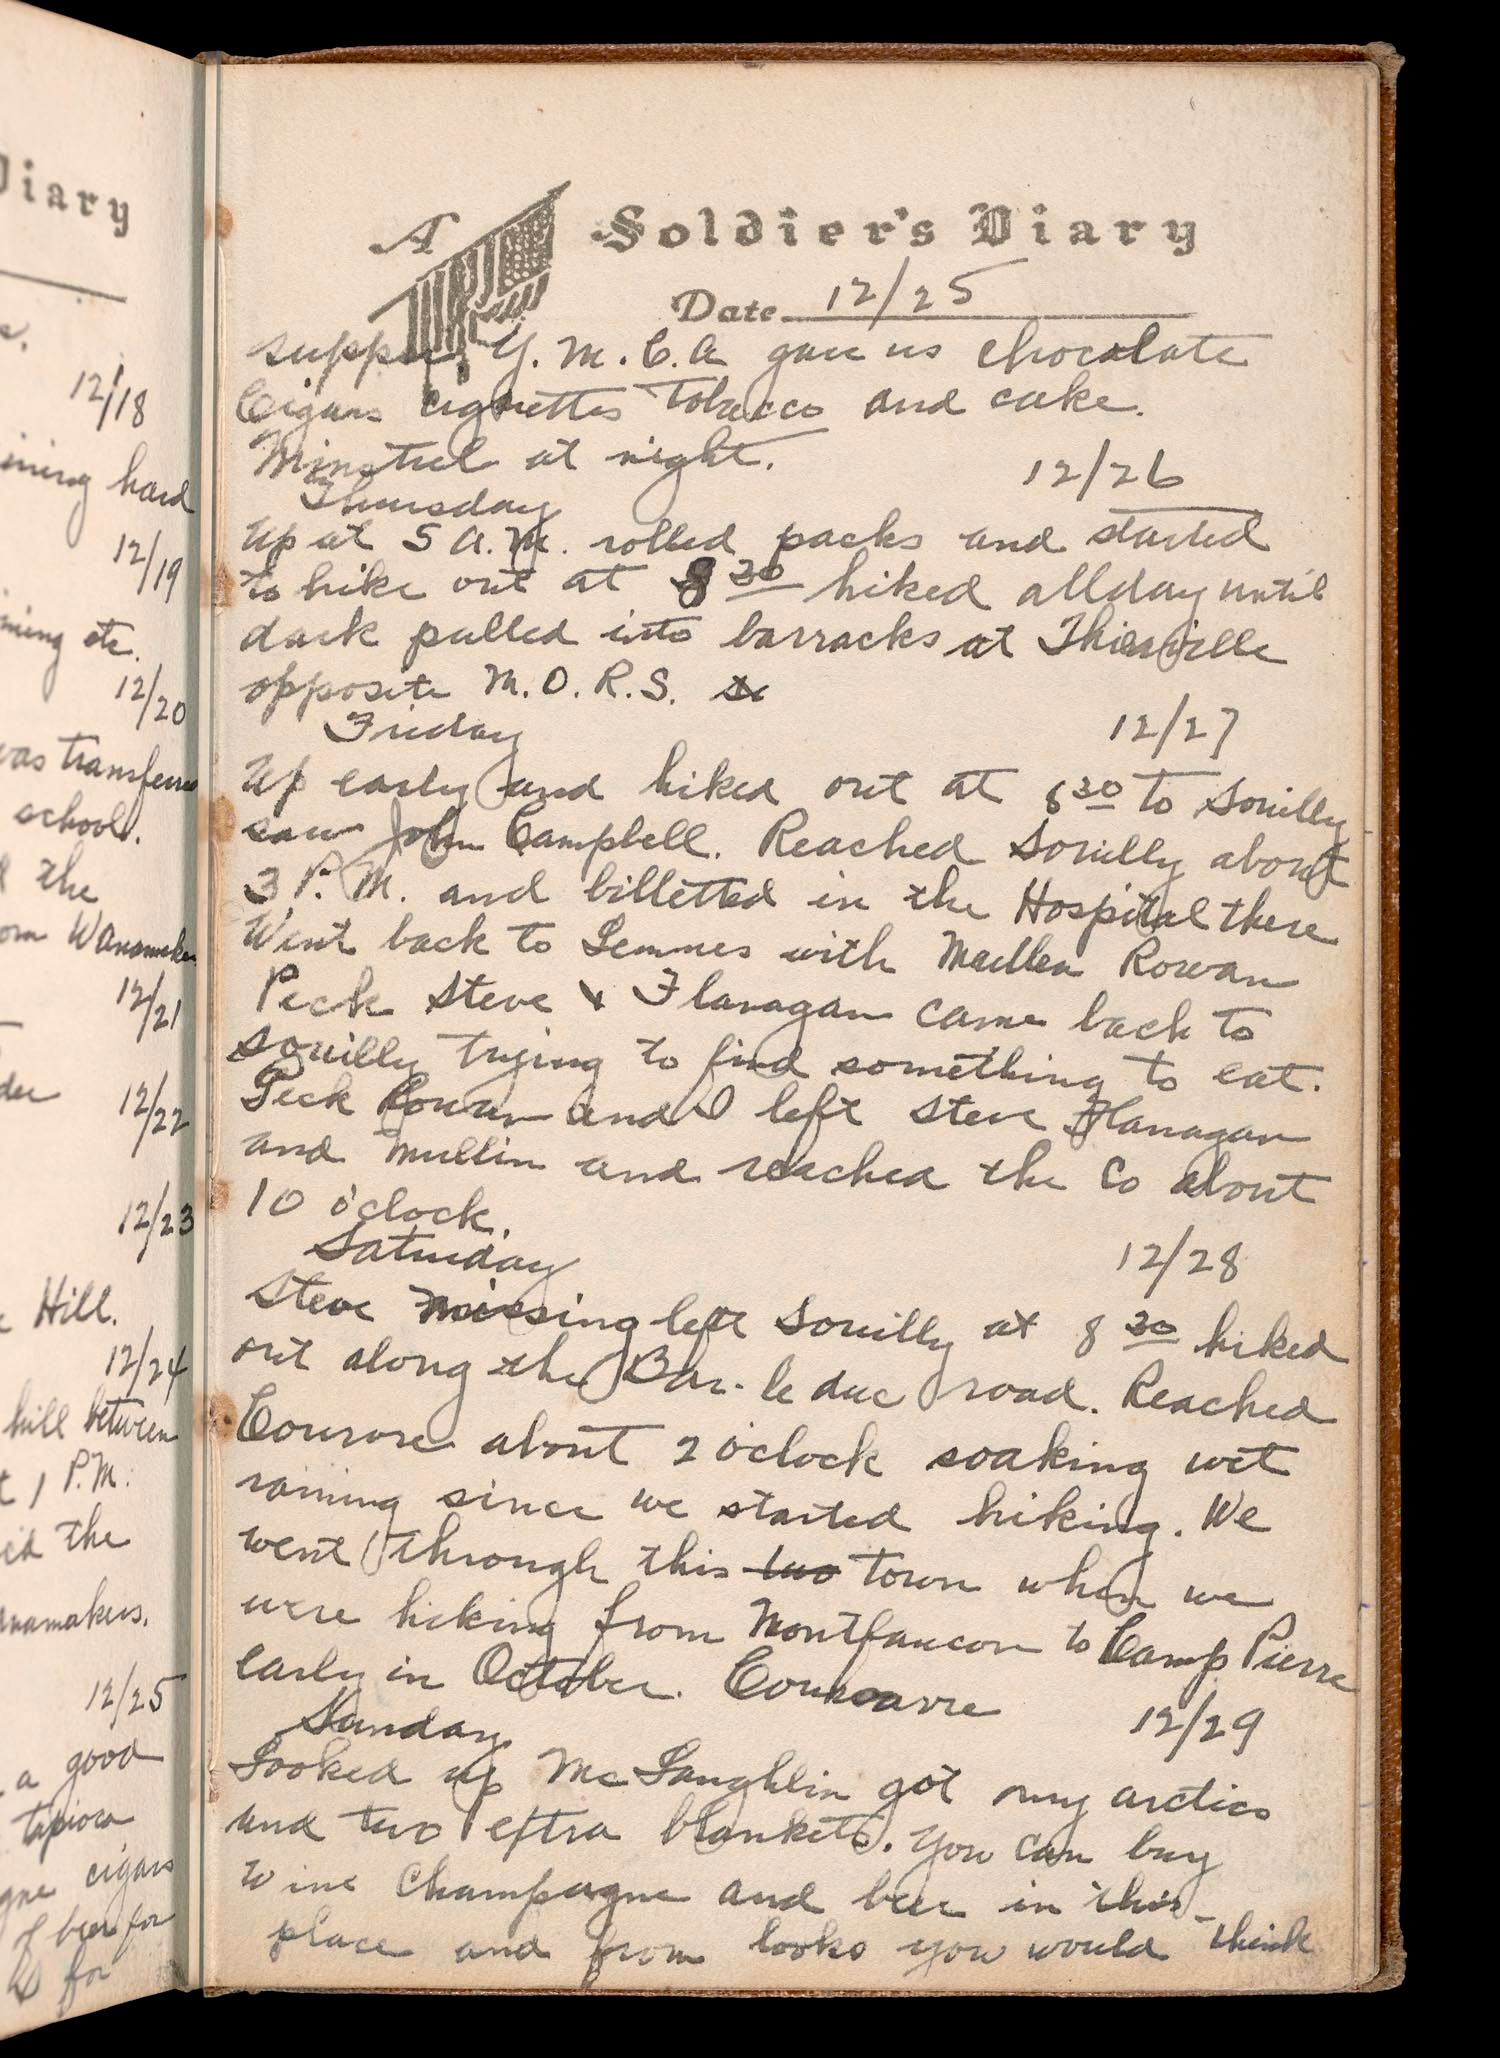 Diary
12/18
ining hard
12/19
ining etc.
12/20
was transferred
school.
the
om Wanamaker
12/21
12/22
12/23
Hill.
12/24
hill between
1 P.M.
the
anamakers.
12/25
a good
tapioca
cigars
of beer for
for
A Soldier's Diary
Date 12/25
supper. Y.M.C.A gave us chocolate
Cigars cigarettes Tobacco and cake.
Minstrel at night.
12/26
Thursday
Up at 5 A.M. rolled packs and started
to hike out at 8 30 hiked all day until
dark pulled into barracks at Thierville
opposite M.O.R.S.
Friday 12/27
Up early and hiked out at 8 30 to Souilly
saw John Campbell. Reached Souilly about
3 P.M. and billetted in the Hospital there
Went back to Lemmes with Mullen Rowan
Peck Steve & Flanagan came back to
Souilly trying to find something to eat.
Peck Rowan and I left Steve Flanagan
and Mullin and reached the Co about
10 o'clock.
Saturday 12/28
Steve missing left Souilly at 8 30 hiked
out along the Bar-le duc road. Reached
about 2 o'clock soaking wet
raining since we started hiking. We
went through this two town when we
were hiking from Montfaucon to Camp Pierre
early in October.
Sunday 12/29
Looked up McLaughlin got my arctics
and two extra blankets. You can buy
wine Champagne and beer in this
place and from looks you would think